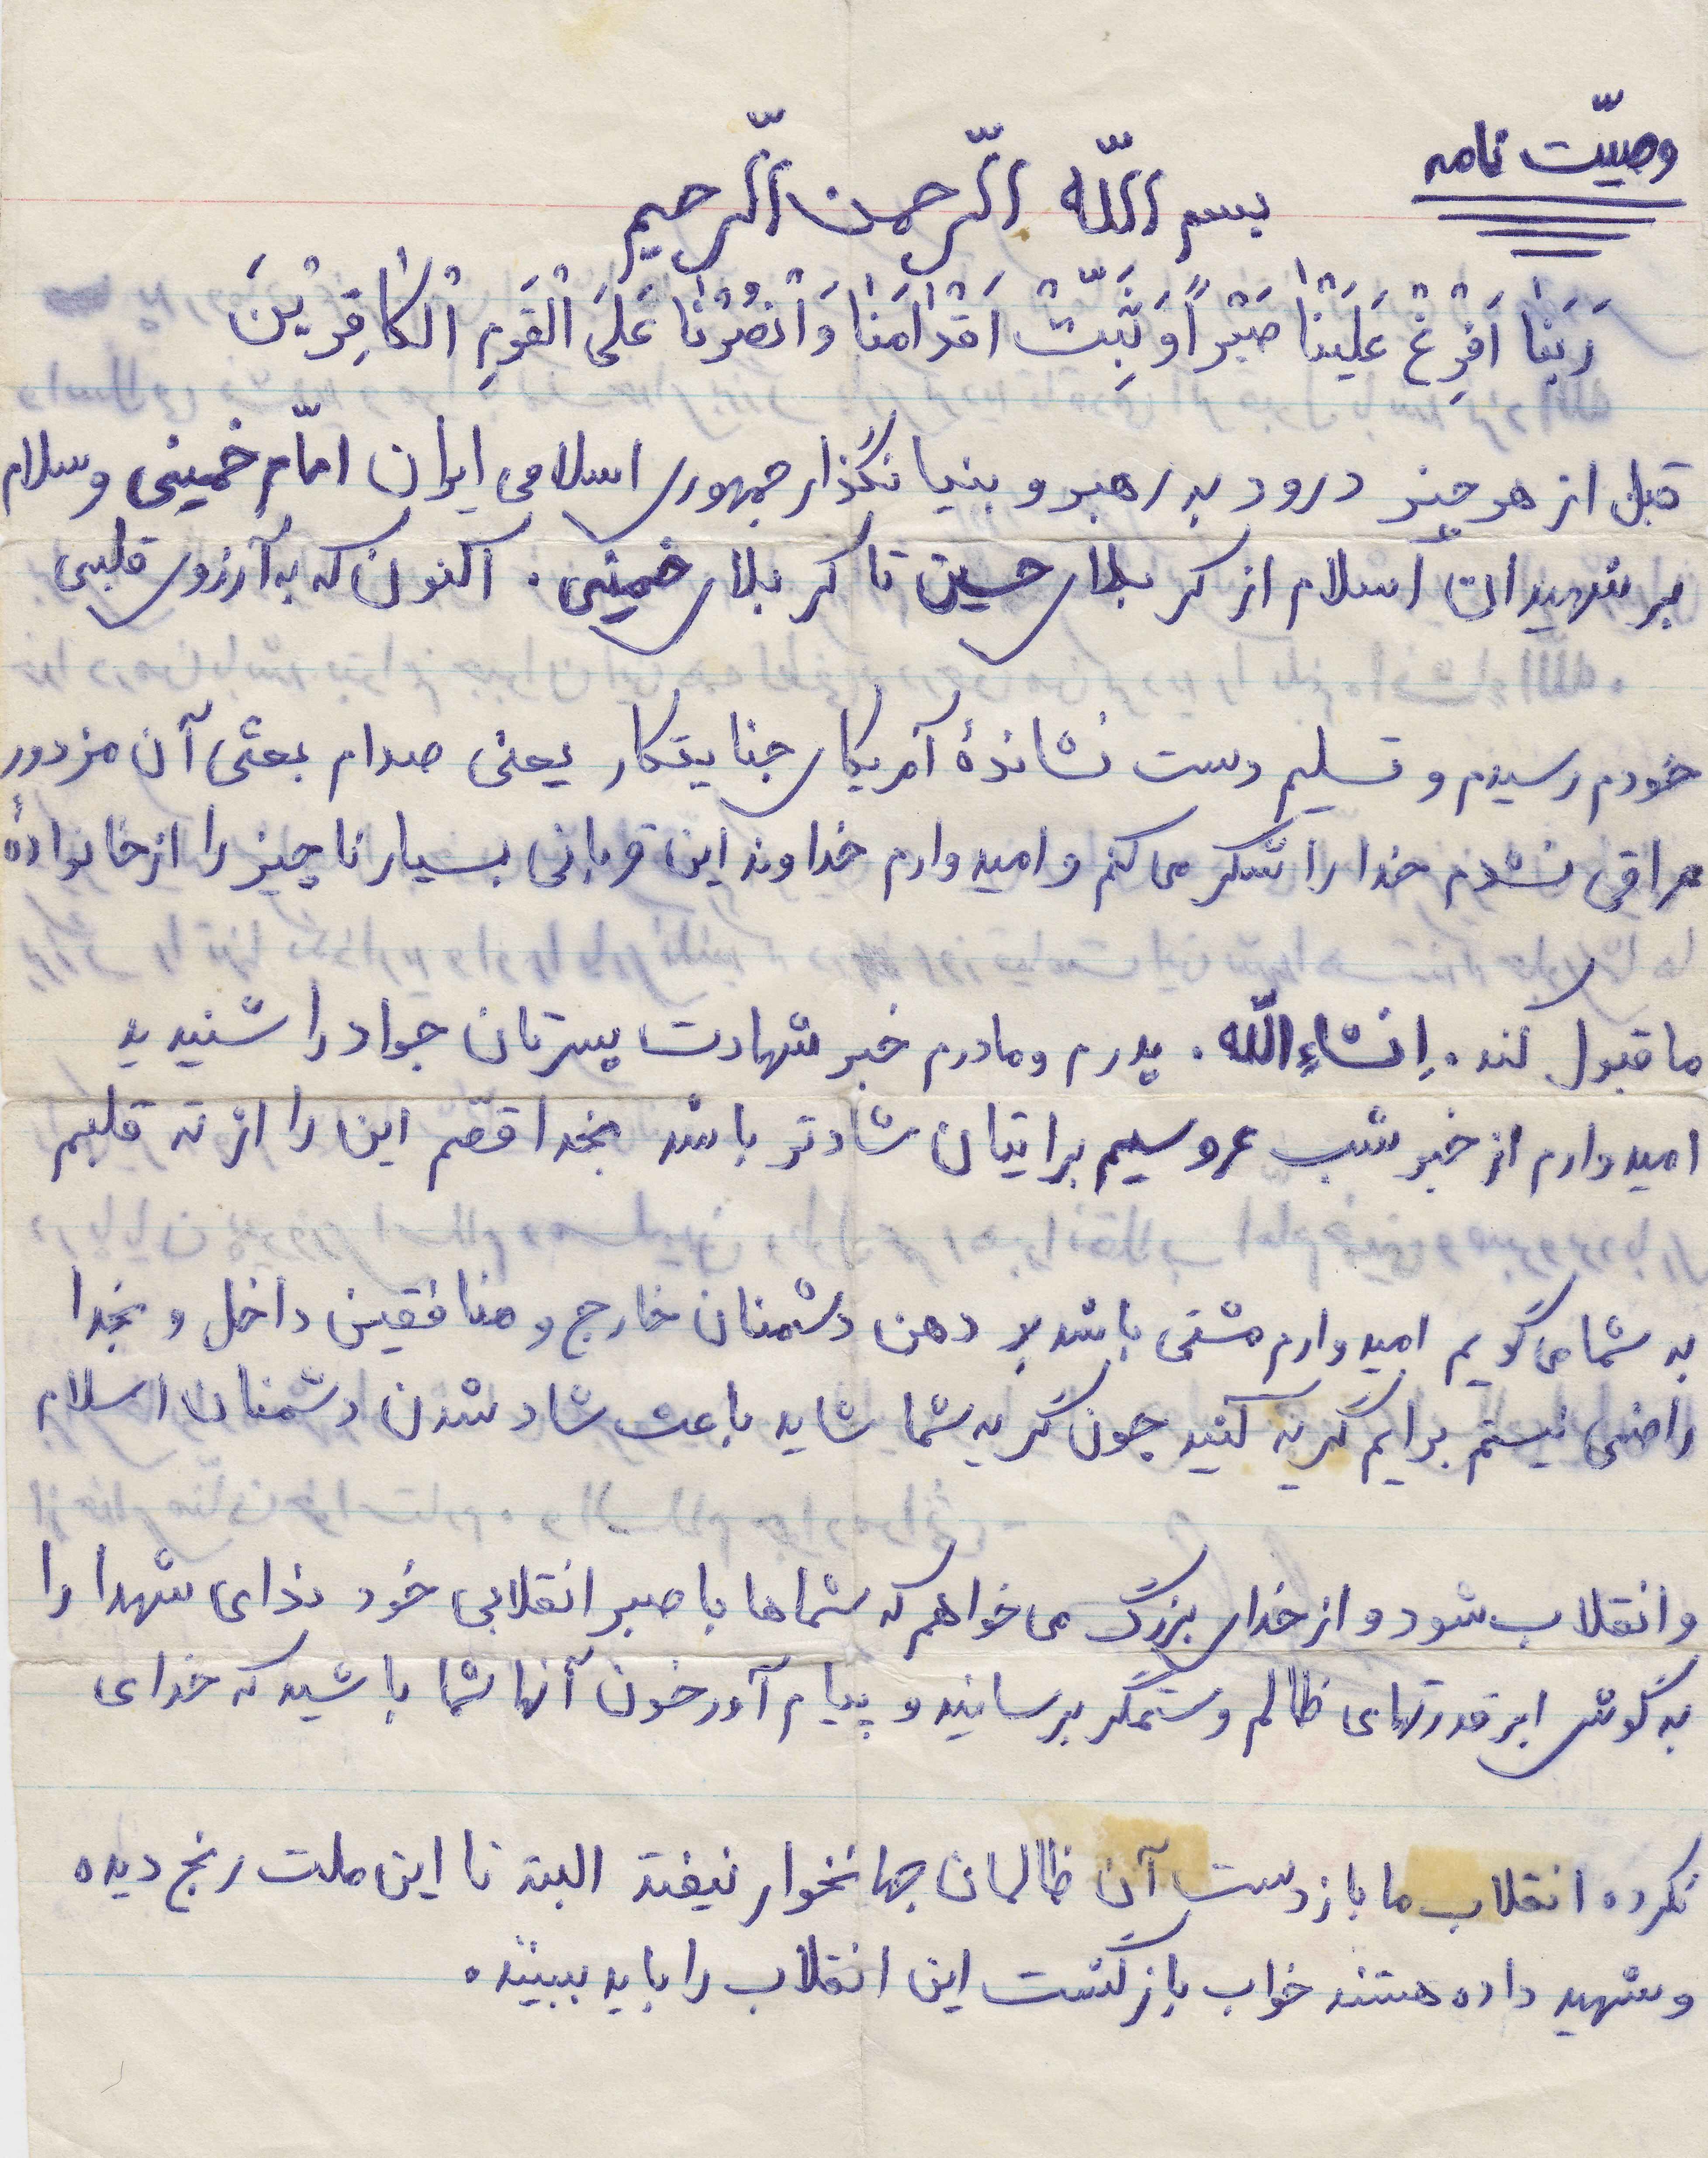 وصیّت نامه
بسم اللّه الرّحمن الرّحیم
رَبَنٰا اَفرِغْ عَلَیْنٰا صَبْراً وَ ثَبِّتْ اَقْدٰامَنٰا وَ انْصُرْنٰا عَلَی الْقَومِ الْکٰافِرْینَ
قبل از هر چیز درود به رهبر و بنیانگذار جمهوری اسلامی ایران امّام خمینی و سلام
بر شهیدان اسلام از کربلای حسین تا کربلای خمینی. اکنون که به آرزوی قلبی
خودم رسیدم و تسلیم دست نشاندۀ آمریکای جنایتکار یعنی صدام بعثی آن مزدور
عراقی نشدم خدا را شکر می کنم و امیدوارم خداوند این قربانی بسیار ناچیز را از خانوادۀ
ما قبول کند. اِنشاءِ اللّه. پدرم و مادرم خبر شهادت پسرتان جواد را شنیدید
امیدوارم از خبر شب عروسیم برایتان شادتر باشد بخدا قسّم این را از ته قلبم
به شما می گویم امیدوارم مشتی باشد بر دهن دشمنان خارج و منافقین داخل و بخدا
راضی نیستم برایم گریه کنید چون گریه شما شاید باعث شاد شدن دشمنان اسلام
و انقلاب شود و از خدای بزرگ می خواهم که شماها با صبر انقلابی خود ندای شهدا را
به گوش ابرقدرتهای ظالم و ستمگر برسانید و پیام آور خون آنها شما باشید که خدای
نکرده انقلاب ما باز دست آن ظالمان جهانخوار نیفتد البته تا این ملت رنج دیده
و شهید داده هستند خواب بازگشت این انقلاب را باید ببینند.